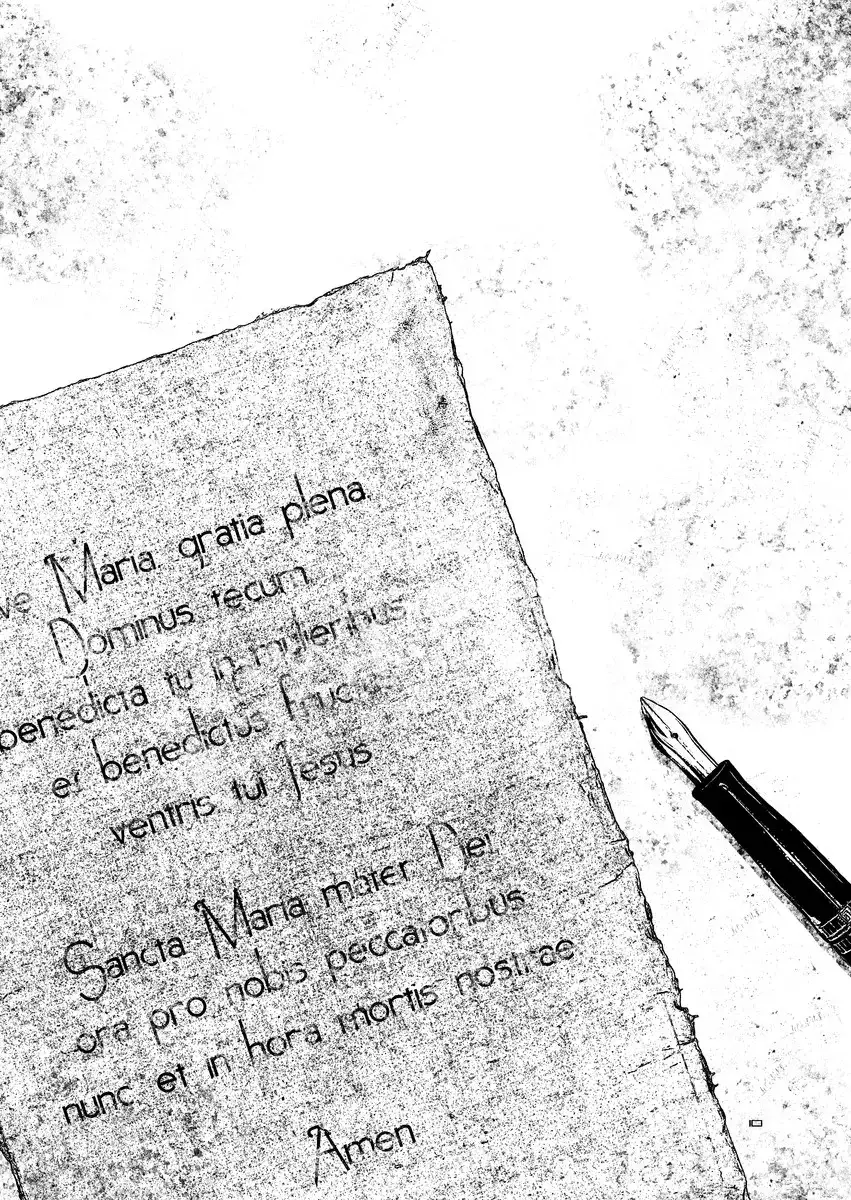 ve Maria gratia plena.
Dominus tecum
benedicta tu in mulieribus
et benedictus fructus
ventris tui Jesus
Sancta Maria mater Dei
ora pro nobis peccatoribus
nunc et in hora mortis nostrae
Amen